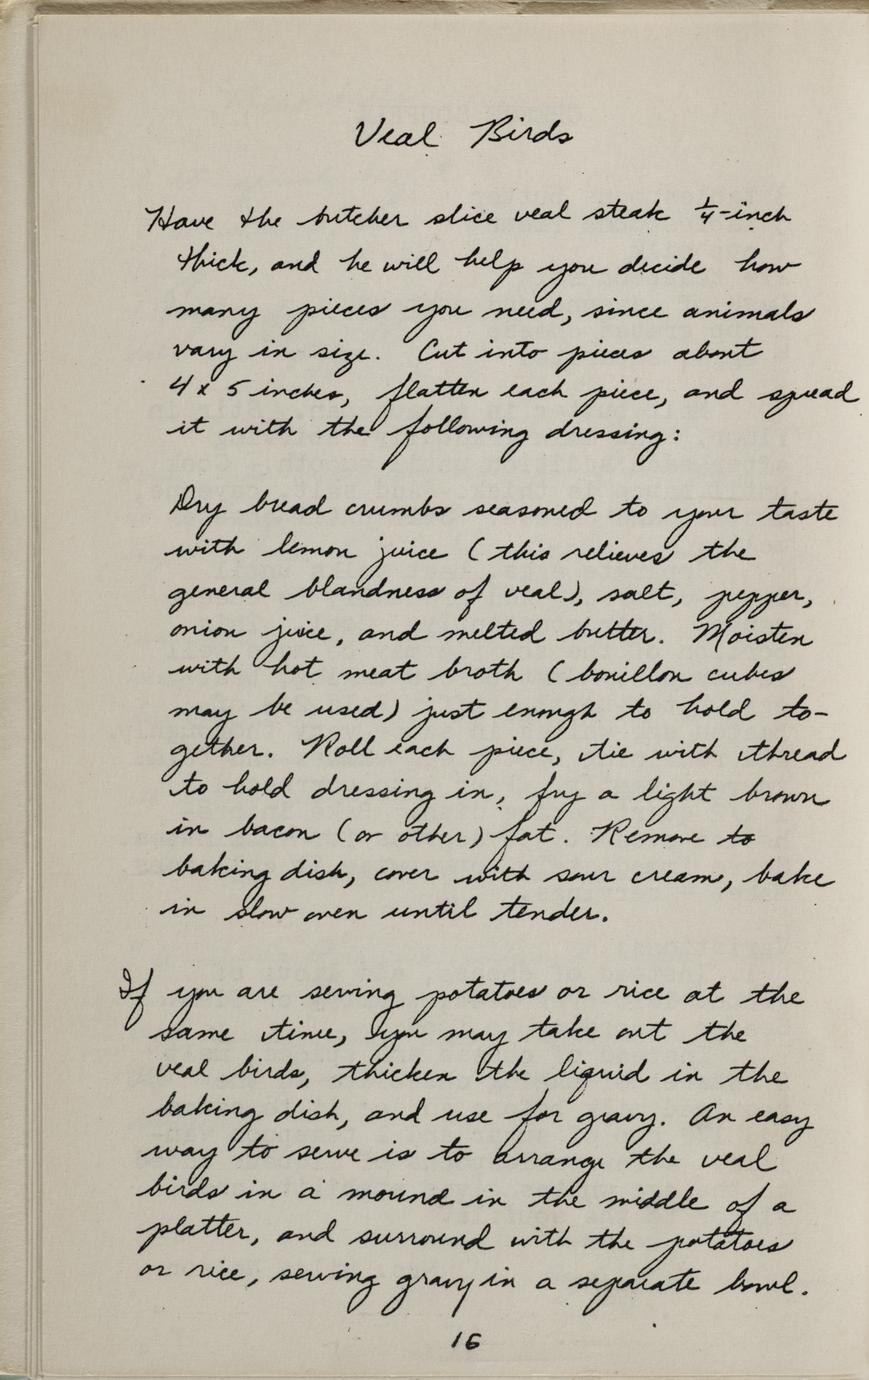 Veal Birds
Have the butcher slice veal steak ¼-inch
thick, and he will help you decide how
many pieces you need, since animals
vary in size. Cut into pieces about
4 x 5 inches, flatten each piece, and spread
it with the following dressing:
Dry bread crumbs seasoned to your taste
with lemon juice (this relieves the
general blandness of veal), salt, pepper,
onion juice, and melted butter. Moisten
with hot meat broth (bouillon cubes
may be used) just enough to hold to-
gether. Roll each piece, tie with thread
to hold dressing in, fry a light brown
in bacon (or other) fat. Remove to
baking dish, cover with sour cream, bake
in slow oven until tender.
If you are serving potatoes or rice at the
same time, you may take out the
veal birds, thicken the liquid in the
baking dish, and use for gravy. An easy
way to serve is to arrange the veal
birds in a mound in the middle of a
platter, and surround with the potatoes
or rice, serving gravy in a separate bowl.
16